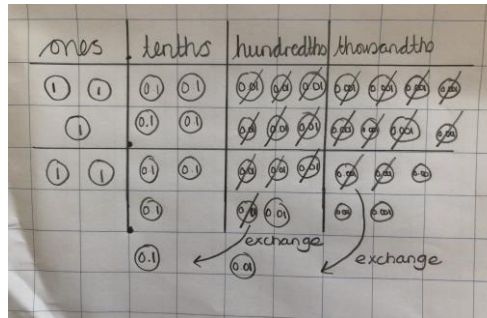 ones tenths hundredths thousandths
1 1 0.1 0.1 0.01 0.01 0.01 0.001 0.001 0.001 0.001
1 0.1 0.1 0.01 0.01 0.01 0.001 0.001 0.001 0.001
1 1 0.1 0.1 0.01 0.01 0.01 0.001 0.001 0.001
0.1 0.01 0.01 0.001 0.001
exchange
0.1 0.01 exchange